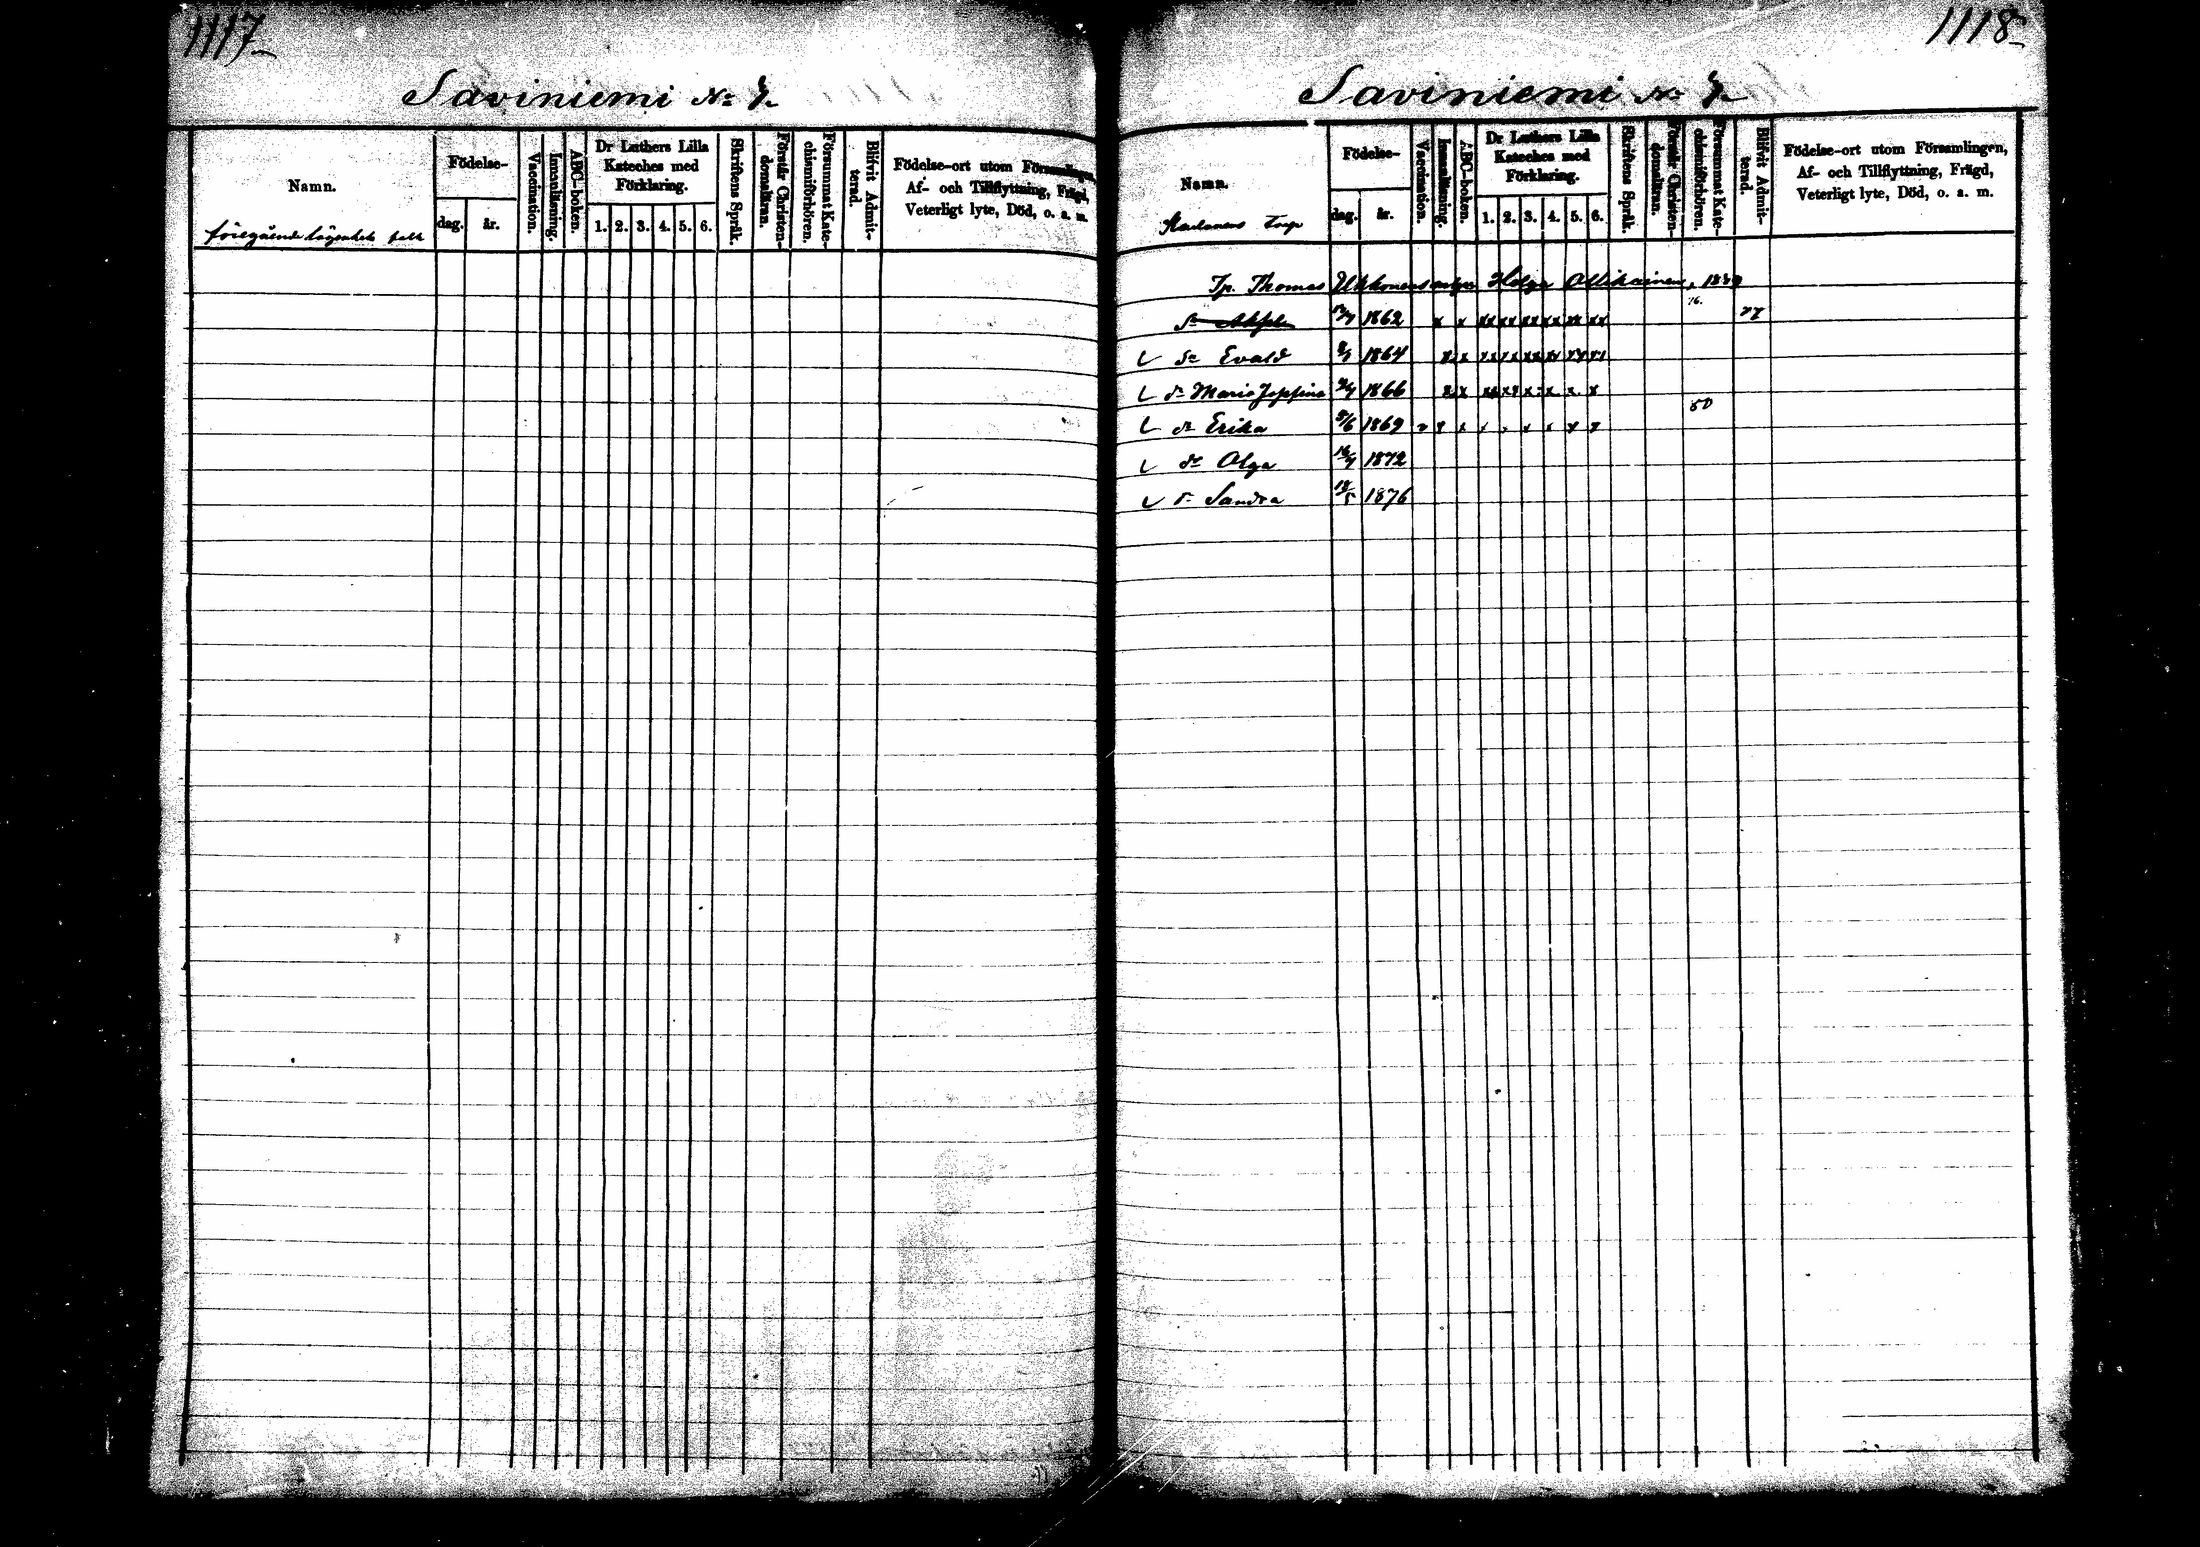 1117
Saviniemi No 7.
Namn.
Födelse-
dag.
år.
Vaccination.
Innanläsning.
ABC-boken.
Dr Luthers Lilla
Kateches med
Förklaring.
1. 2. 3. 4. 5. 6.
Skriftens Språk.
Förstår Christen-
domsläran.
Försummat Kate-
chismiförhören.
Blifvit Admit-
terad.
Födelse-ort utom Församlingen,
Af- och Tillflyttning, Frägd,
Veterligt lyte, Död, o. a. m.
föregående
1118
Saviniemi No 7.
Namn.
Födelse-
dag.
år.
Vaccination.
Innanläsning.
ABC-boken.
Dr Luthers Lilla
Kateches med
Förklaring.
1. 2. 3. 4. 5. 6.
Skriftens Språk.
Förstår Christen-
domsläran.
Försummat Kate-
chismiförhören.
Blifvit Admit-
terad.
Födelse-ort utom Församlingen,
Af- och Tillflyttning, Frägd,
Veterligt lyte, Död, o. a. m.
Torp
Thomas Ukkonens Helga Ollikainen,
1862 77
Sn Evald 1864
Dr Maria Josefina 1866
50
dr Erika 1869
dr Olga 1872
dr Sandra 18/5 1876